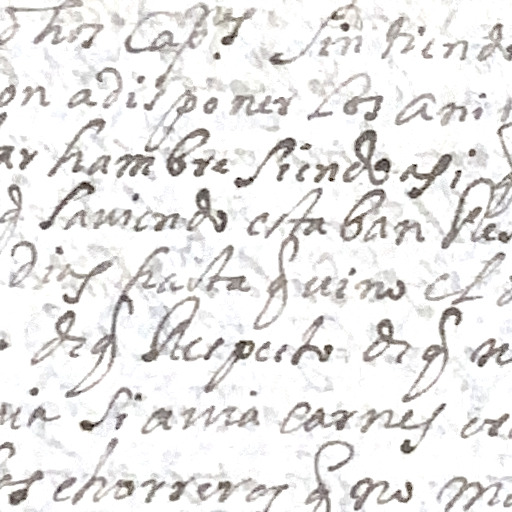 dhos Cap.s Sintiendo
on adisponer Los ani
ar hambre siendo asi q
q saviendo estaban
dias hasta q vino el
deq Respecto deq n
via si avia carnes
es chorreros q no m